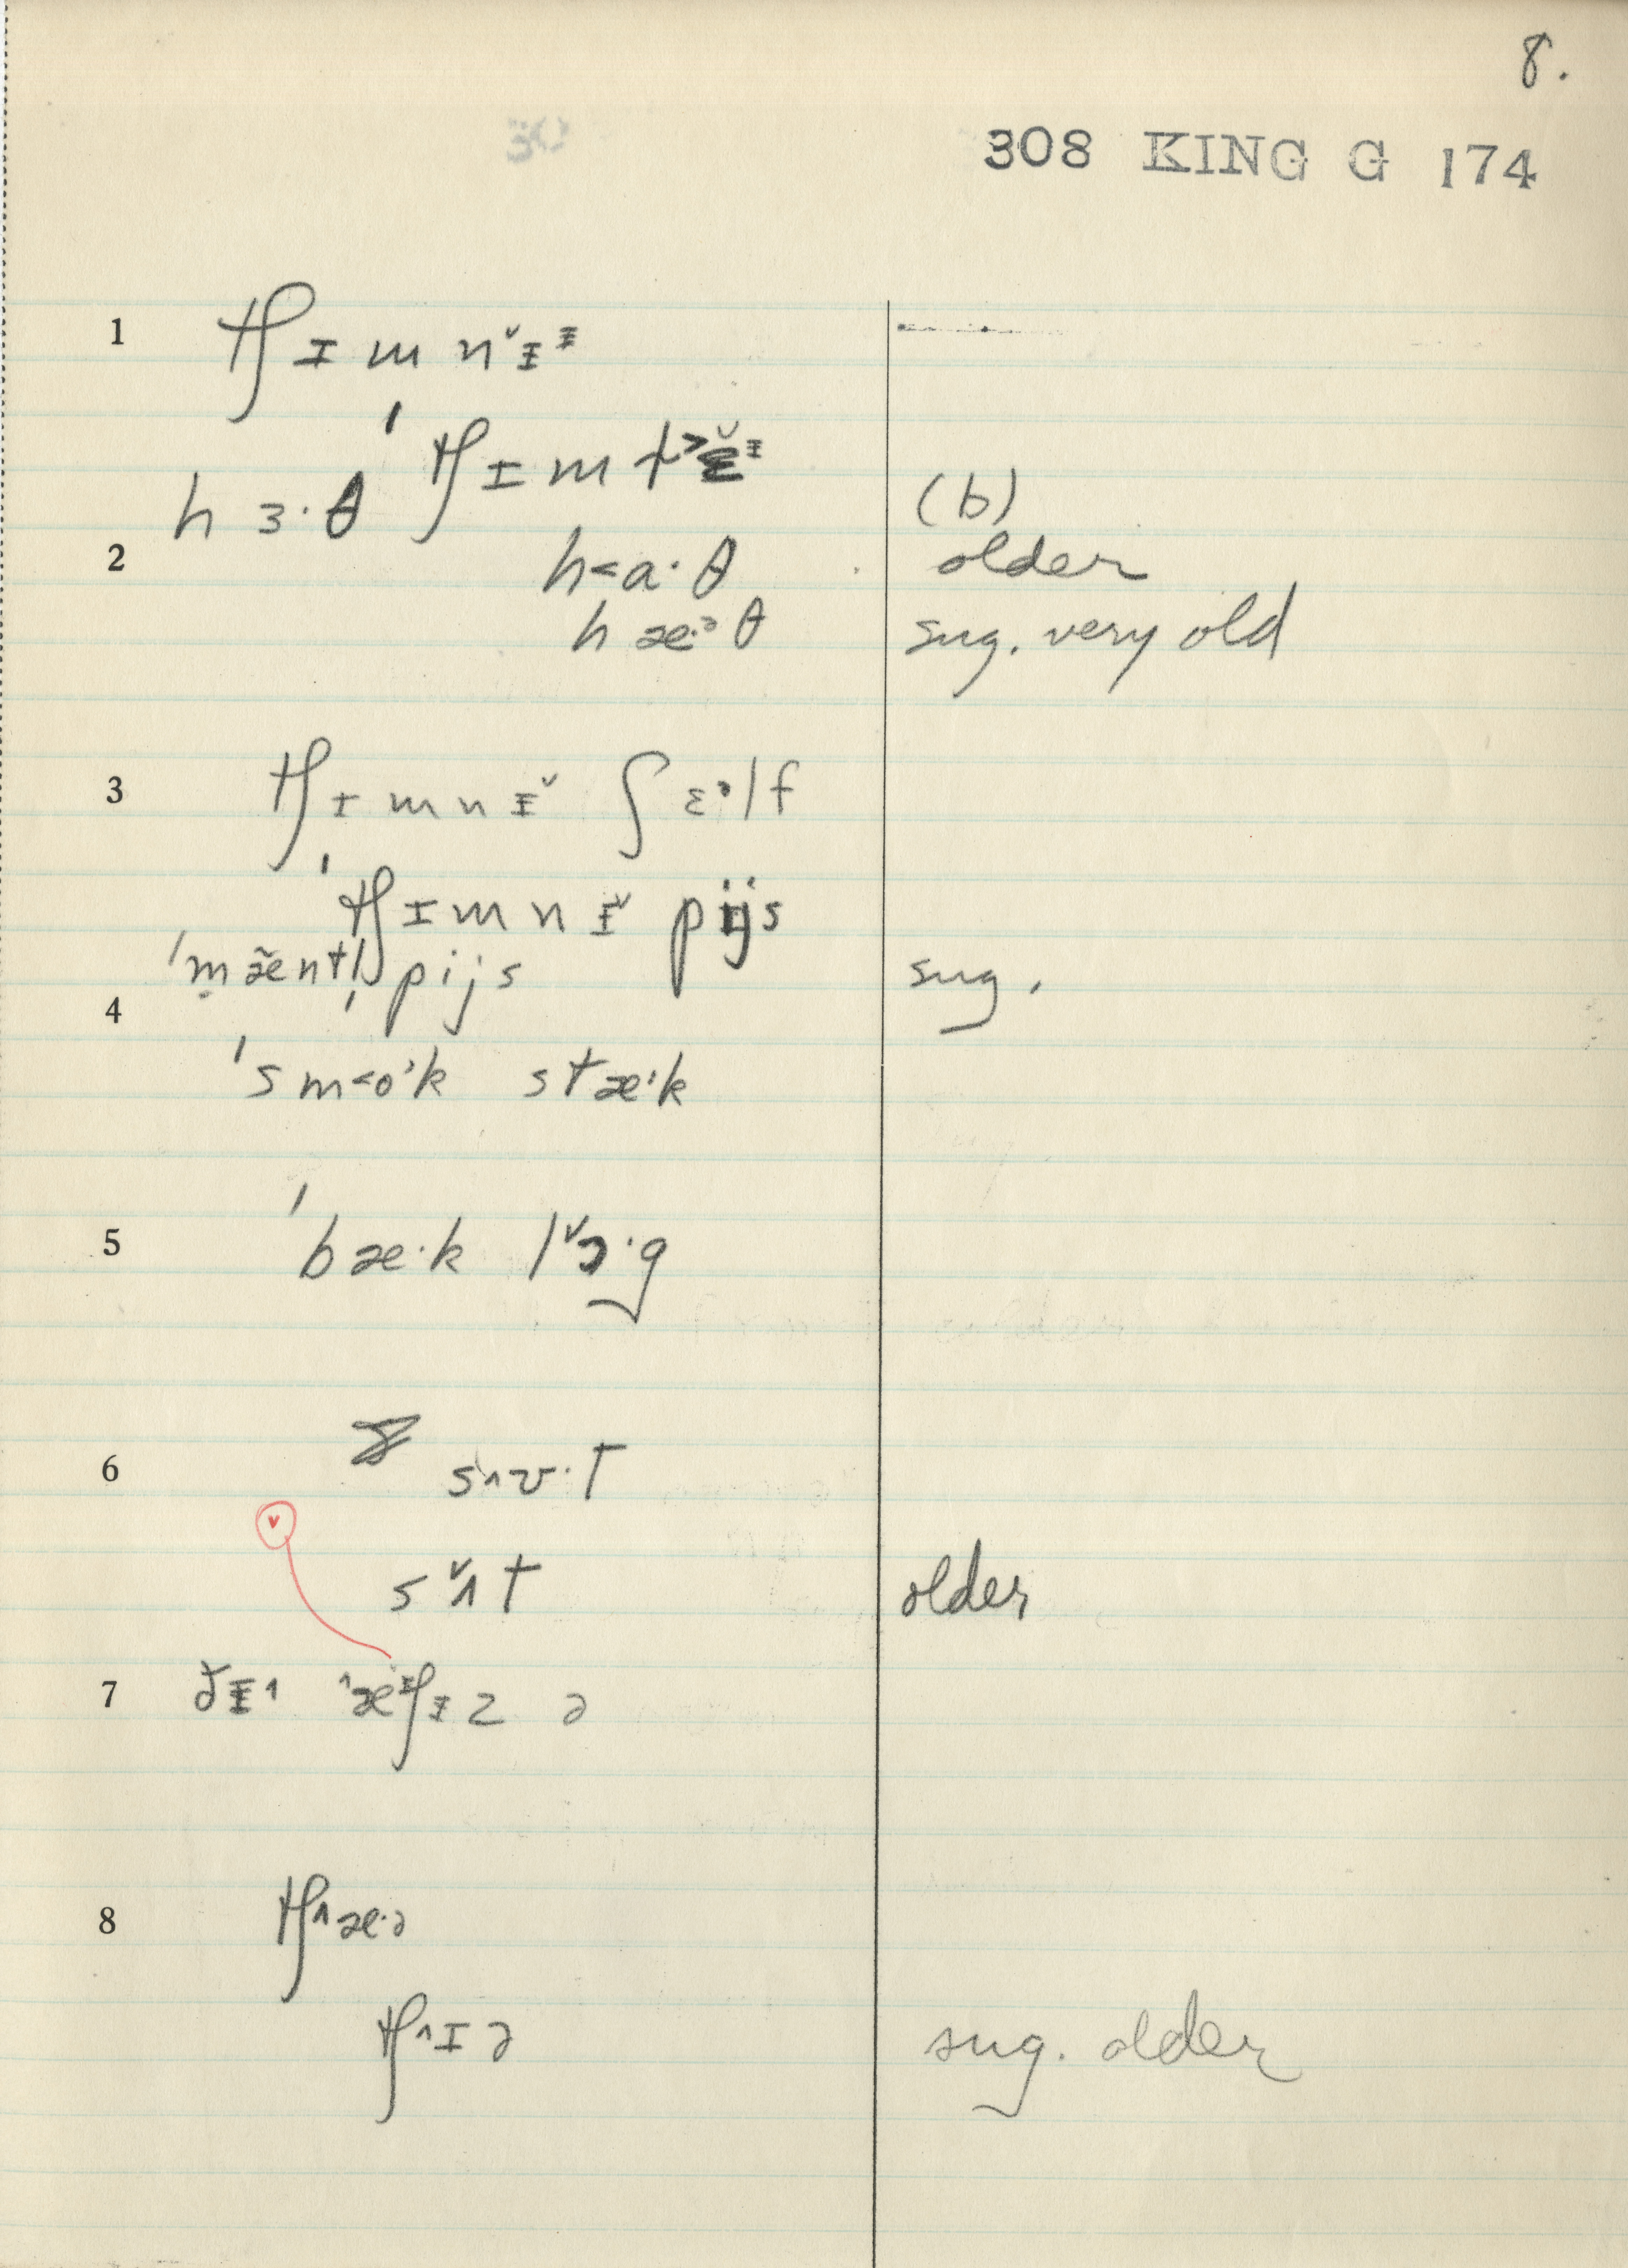 8.
308 KING G 174
1 tʃɪmn˅ɪᶤ
ˈtʃɪmt˃ɪ̆ᶤ
hɜ·θ (b)
2 h˂a·θ older
hæ·ᵊθ sug. very old
3 tʃɪmnɪ˅ ʃɛᵊlf
ˈtʃɪmnɪ˅ pijs
ˈmæ̃ntl̩ pijs sug.
4
ˈsm˂o·k stæ·k
5 ˈbæ·k l˅ɔ·g
6 s˄ʊ·t
s˅ʌt older
7 ðɪ˄ ˄æʃɪz ə
8 tʃ˄æ·ə
tʃ˄ɪə sug. older